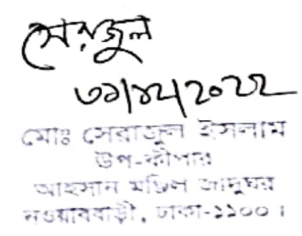 সেরাজুল
৩১/১২/২০২২
মোঃ সেরাজুল ইসলাম
উপ-কীপার
আহসান মঞ্জিল জাদুঘর
নওয়াববাড়ী, ঢাকা-১১০০।